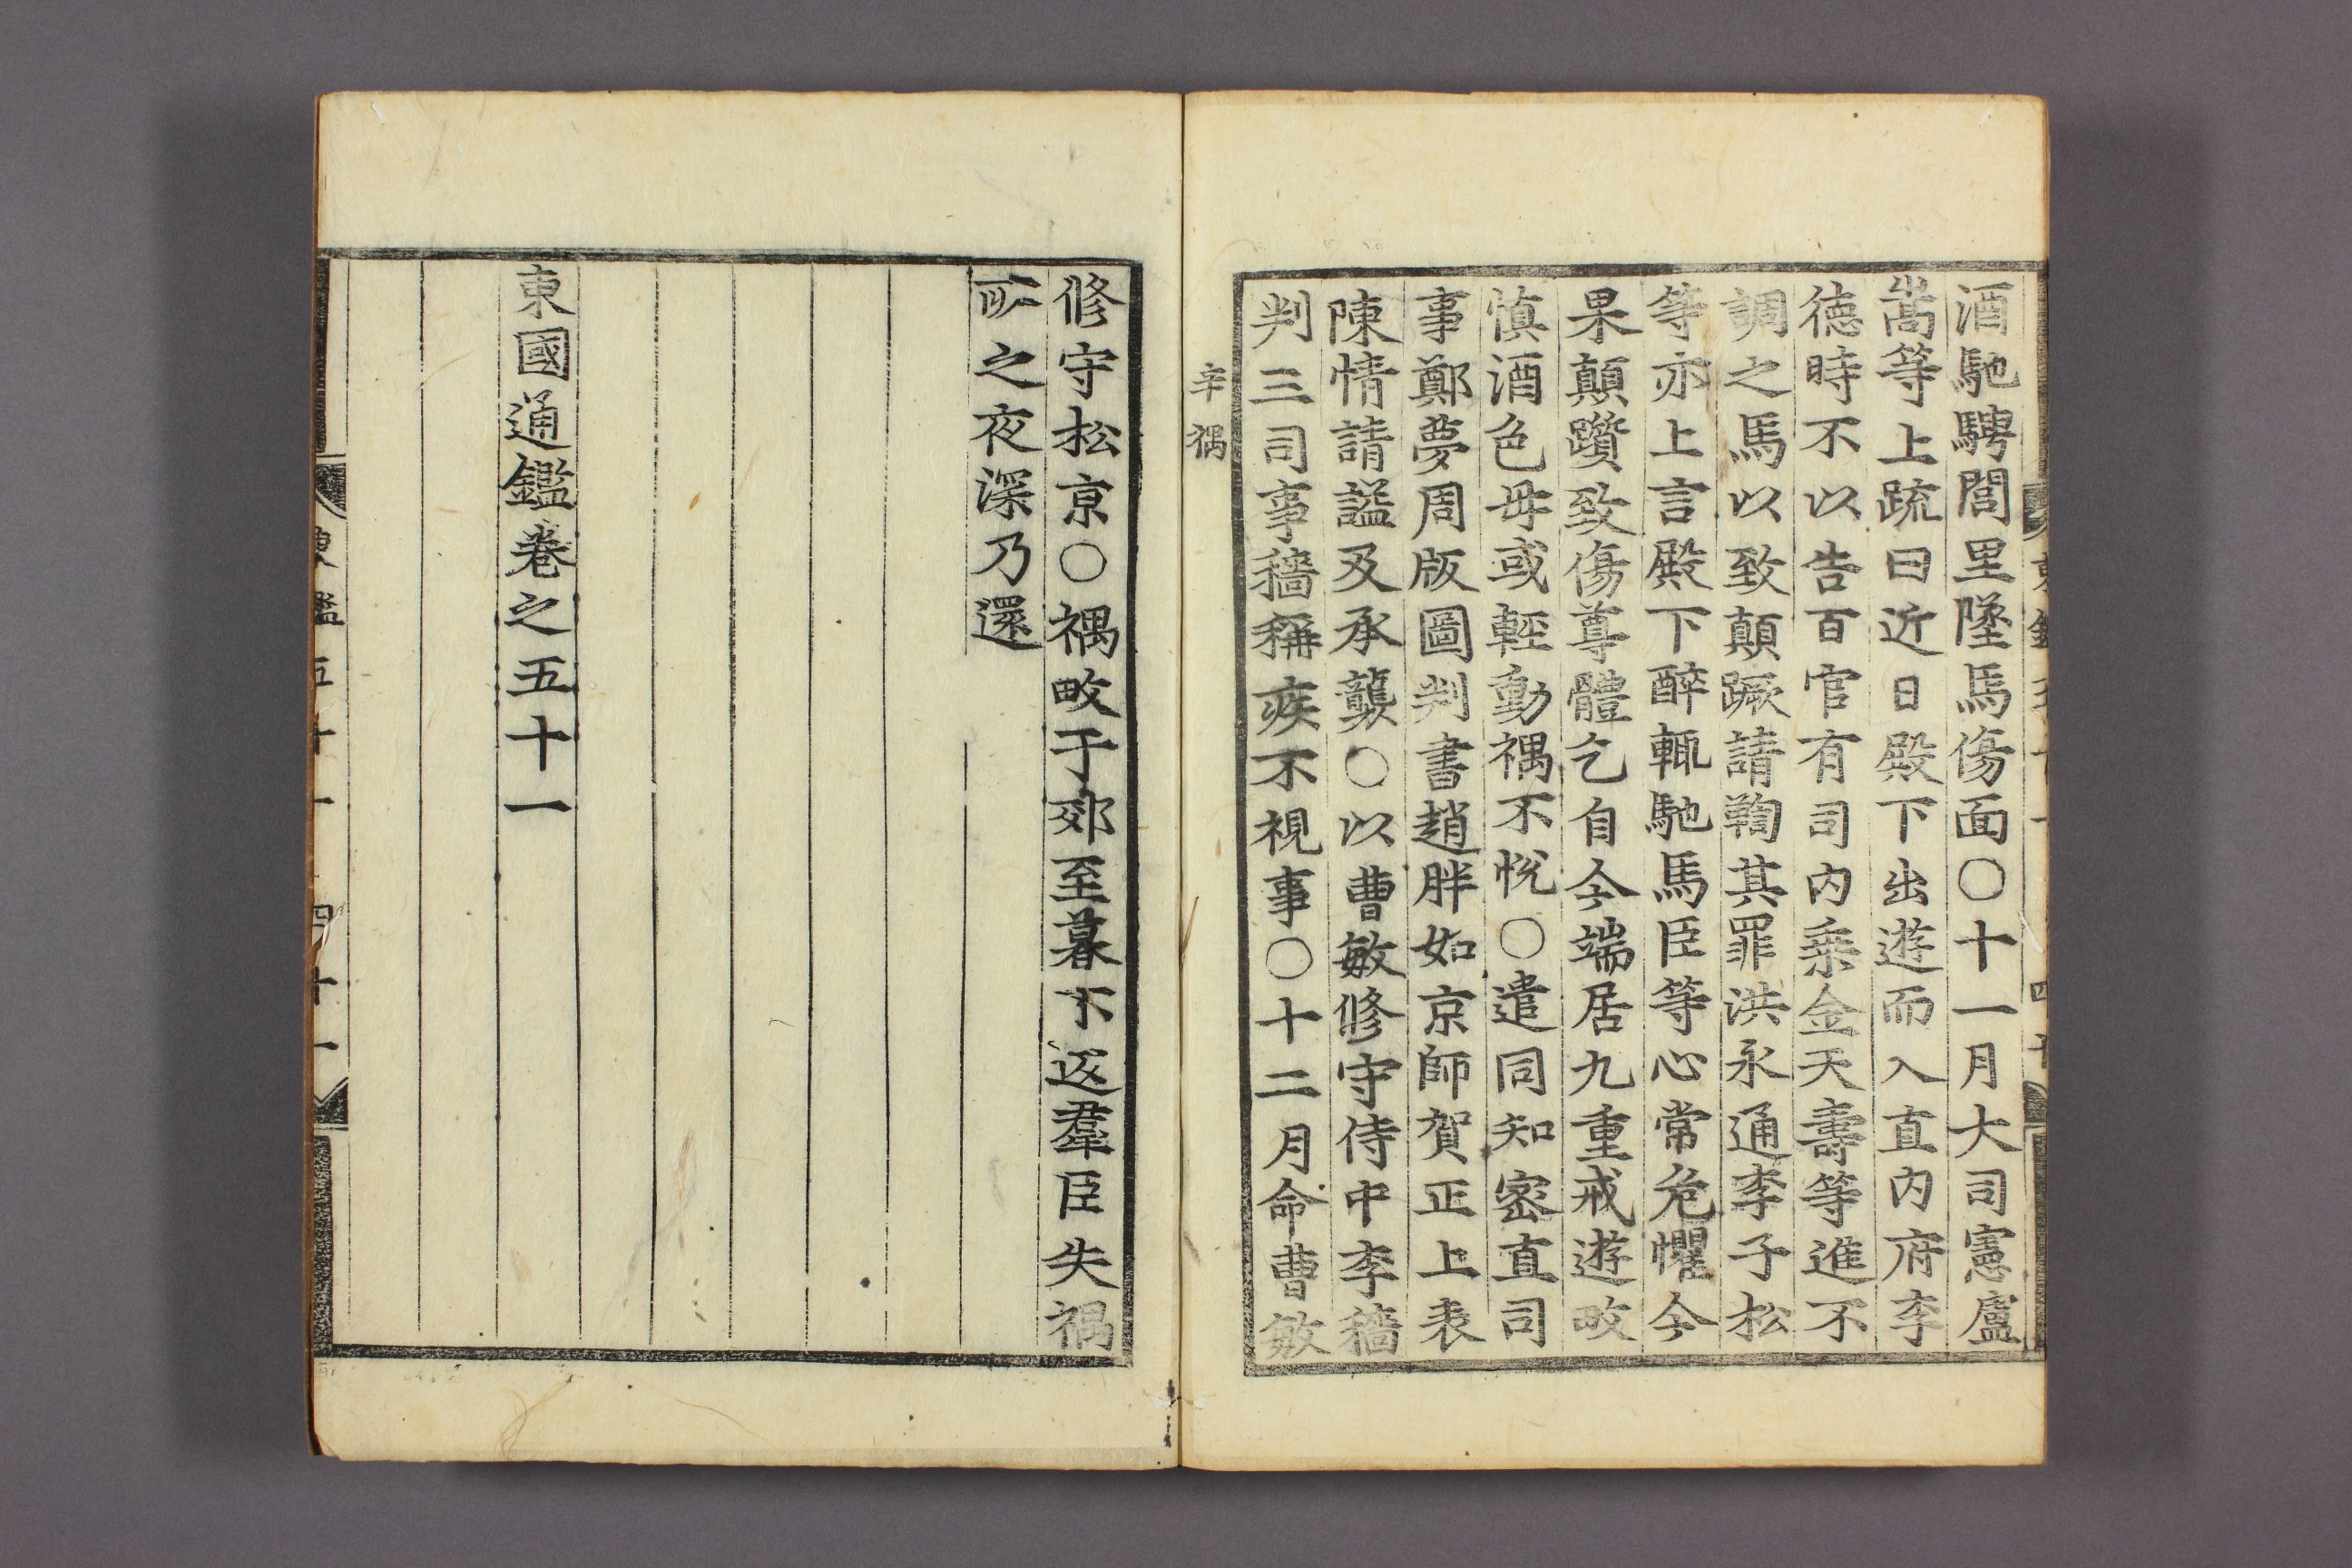 酒馳騁閭里墜馬傷面○十一月大司憲盧
嵩等上疏曰近日殿下出遊而入直內府李
德時不以告百官有司內乘金天壽等進不
調之馬以致顚蹶請鞫其罪洪永通李子松
等亦上言殿下醉輒馳馬臣等心常危懼今
果顚躓致傷尊體乞自今端居九重戒遊畋
愼酒色毋或輕動禑不悅○遣同知密直司
事鄭夢周版圖判書趙胖如京師賀正上表
陳情請謚及承襲○以曹敏修守侍中李穡
判三司事穡稱疾不視事○十二月命曹敏
辛禑
修守松京○禑畋于郊至暮不返羣臣失禑
所之夜深乃還
東國通鑑卷之五十一
東鑑五十一 四十一